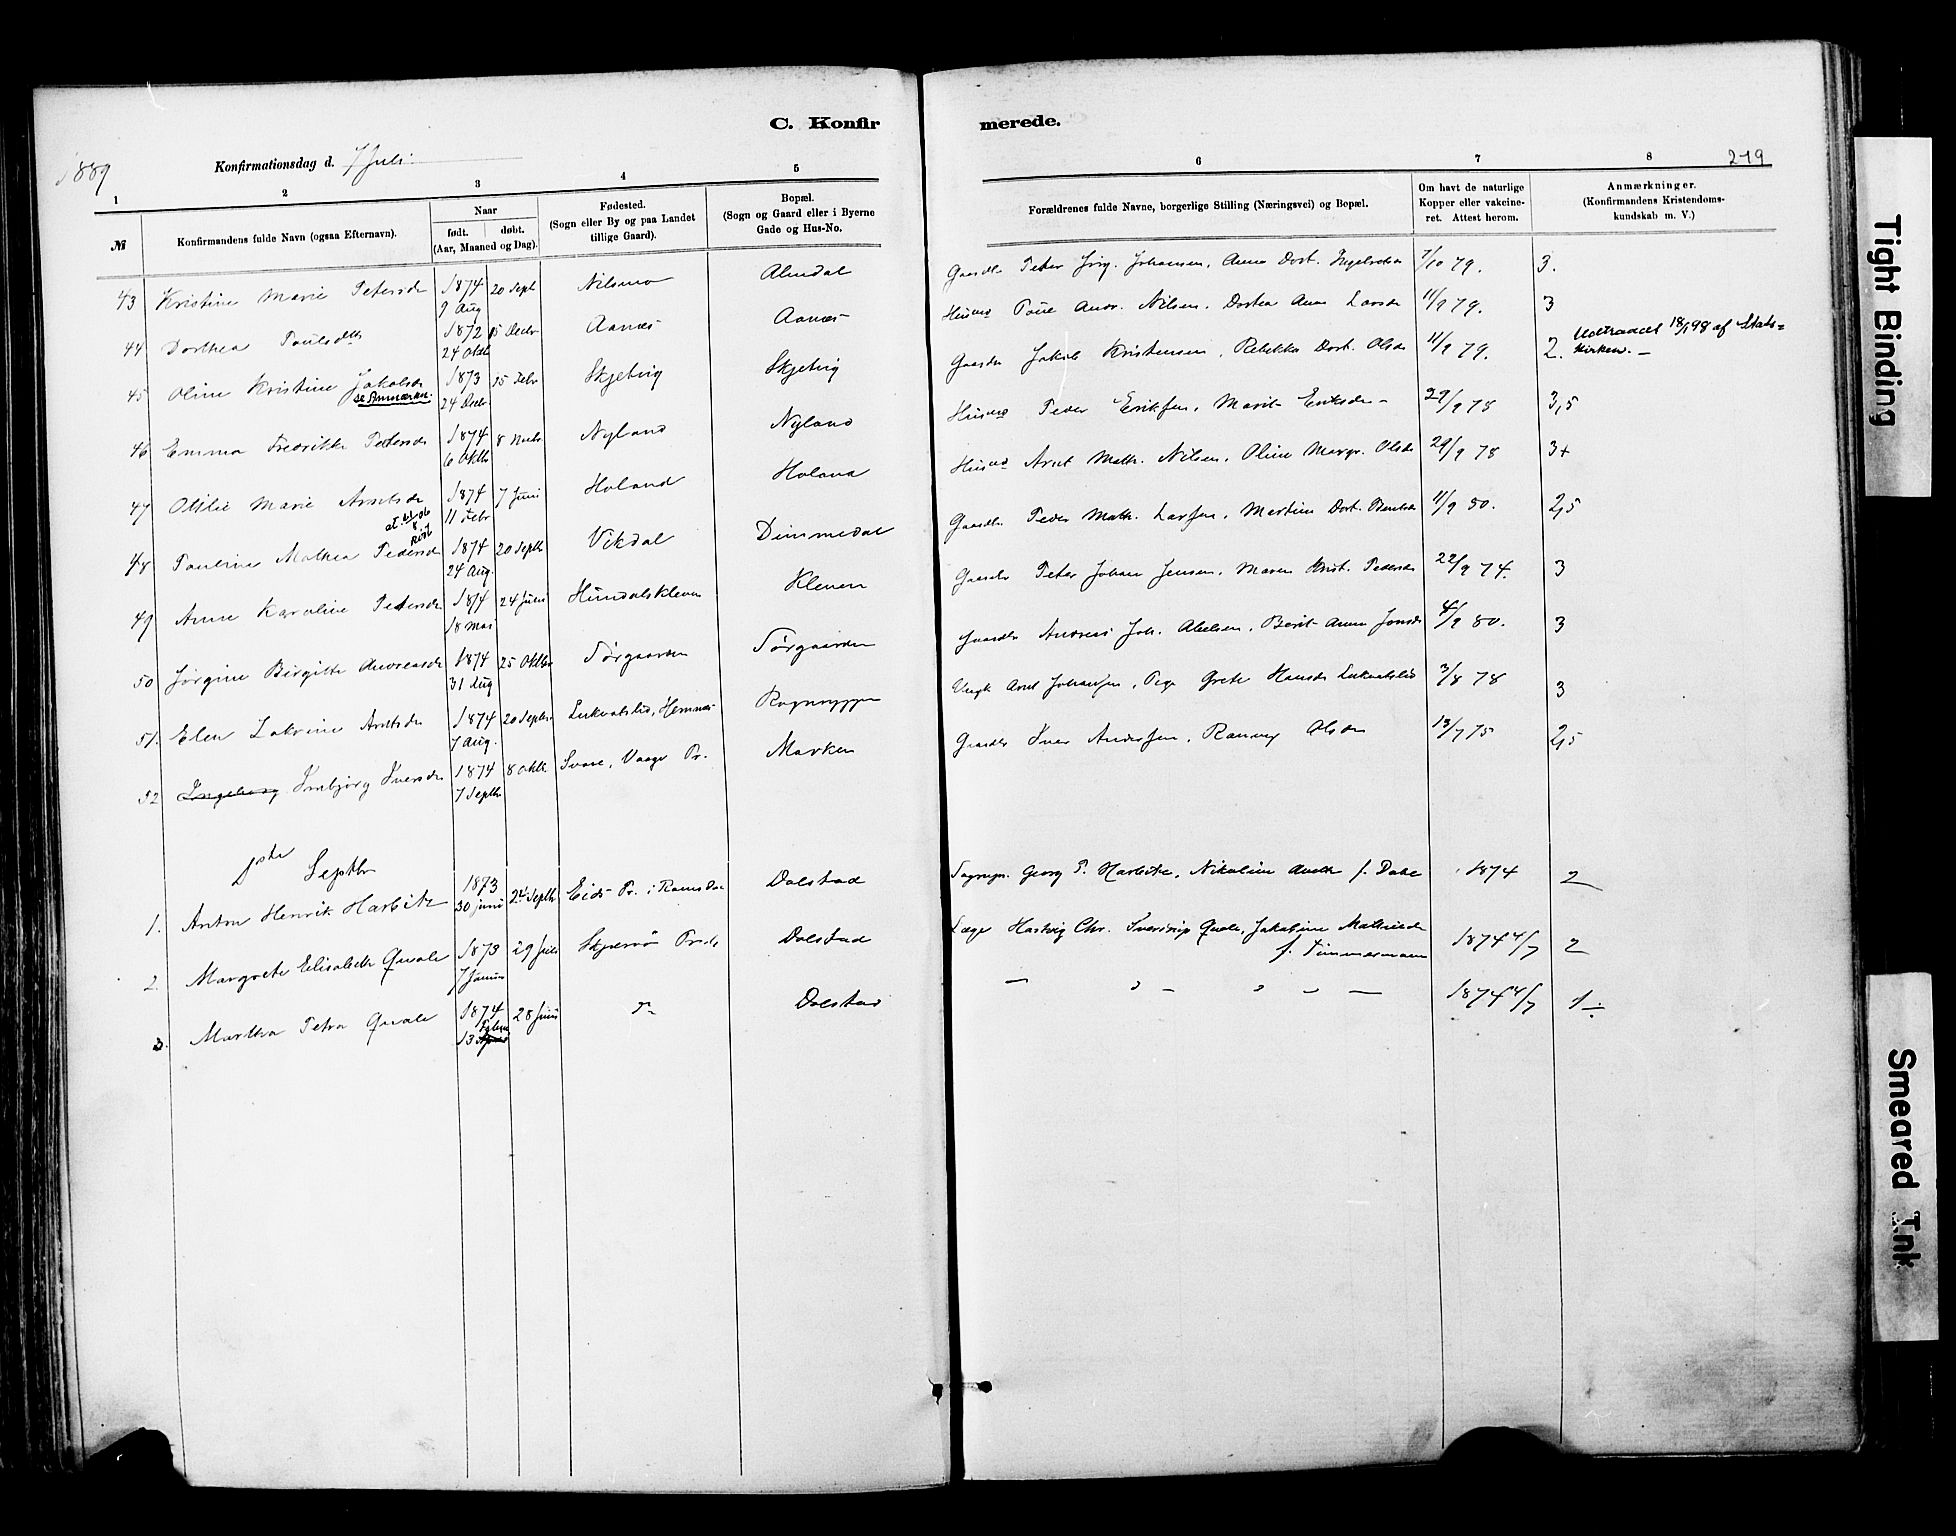 C. Konfirmerede.
1889
Konfirmationsdag d. 7 Juli
219
1 2 3 4 5 6 7 8
№
Konfirmandens fulde Navn (ogsaa Efternavn).
Naar
født. døbt.
(Aar, Maaned og Dag).
Fødested.
(Sogn eller By og paa Landet
tillige Gaard).
Bopæl.
(Sogn og Gaard eller i Byerne
Gade og Hus-No.
Forældrenes fulde Navne, borgerlige Stilling (Næringsvei) og Bopæl.
Om havt de naturlige
Kopper eller vakcine-
ret. Attest herom.
Anmærkninger.
(Konfirmandens Kristendoms-
kundskab m. V.)
43 Kristine Marie Petersdr 1874 9 Aug 20 Sept Nilsmo Almdal Gaardbr Peter Jørg. Johansen, Anna Dort. 7/10 79. 3.
44 Dorthea Paulsdtr 1872 24 Oktb 15 Decbr Aanæs Aanæs Husmd Poul Andr. Nilsen, Dortea Anna Larsdr 11/9 79. 3
45 Oline Kristine Jakobsdr 1873 24 Decbr 15 Febr Skjetvig Skjetvig Gaardbr Jakob Kristensen, Rebekka Dort. Olsdr 11/9 79. 2.
se Anmærkn.
Udtraadt 18/1 98 af Stats=
kirken. —
46 Emma Fredrikke Pedersdr 1874 6 Oktbr 8 Novbr Nyland Nyland Husmd Peder Eriksen, Marit Eriksdr 29/9 78 3,5
47 Otilie Marie Arntsdr 1874 11 Febr 7 Juni Holand Holand Husmd Arnt Math. Nilsen, Oline Margr. Olsdr 29/9 78 3+
48 Pauline Mathea Pedersdr 1874 24 Aug. 20 Septb Vikdal Dimmedal Gaardbr. Peder Math. Larsen, Martine Dort. 11/9 80. 2,5
49 Anne Karoline Petersdr 1874 18 Mai 24 Juni Hundalskleven Kleven Gaardbr Peter Johan Jensen, Maren Krist. Pedersdr 22/9 74. 3
50 Jørgine Birgitte Andreasdr 1874 31 Aug 25 Oktbr Sørgaarden Sørgaarden Gaardbr Andreas Joh. Abelsen, Berit Anna Jonsdr 4/9 80. 3
51. Elen Lovrine Arntsdr 1874 7 Aug. 20 Septbr Lukvatslid, Hemnæs Rognryggen Ungk Arnt Johansen, Pige Grete Hansdr Lukvatslid 3/8 78 3
52 Ingeborg Imbjørg Iversdr 1874 7 Septbr 8 Oktb Svare, Vaage Pr. Marken Gaardbr Iver Andersen, Ranveg Olsdr 13/7 75 2,5
1ste Septbr
1. Anton Henrik Harbitz 1873 30 juni 24 Septb Eids Pr. i Romsdal Dolstad Sognepr. Georg P. Harbitz, Nikoline f. Daae 1874 2
2. Margrete Elisabeth Qvale 1873 7 Januar 29 Juli Skjærvø Pr. Dolstad Læge Hartvig Chr. Sverdrup Qvale, Jakobine Mathilde
f. Timmermann 1874 4/7 2
3. Martha Petra Qvale 1874 13 28 Juni Do Dolstad — " — " — — 1874 4/7 1÷
Tight Binding
Smeared Ink